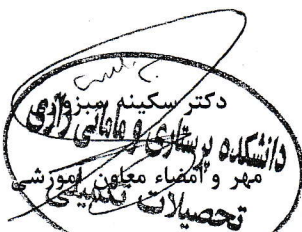 دکتر سکینه سبزواری
دانشکده پرستاری و مامائی رازی
مهر و امضاء معاون آموزشی
تحصیلات تکمیلی